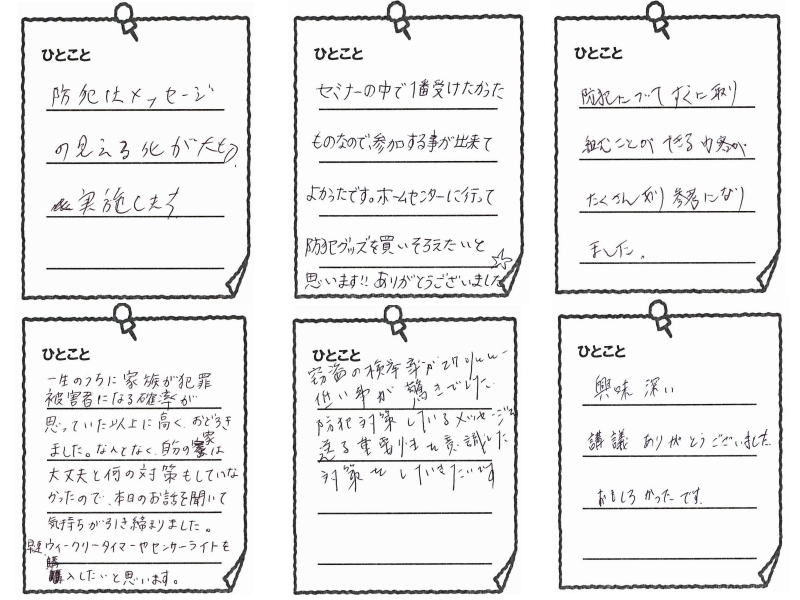 ひとこと
防犯はメッセージ
の見える化が大切
実施します
ひとこと
セミナーの中で1番受けたかった
ものなので、参加する事が出来て
よかったです。ホームセンターに行って
防犯グッズを買いそろえたいと
思います!!ありがとうございました☆
ひとこと
防犯について すぐに取り
組むことが できる内容が
たくさんあり 参考になり
ました。
ひとこと
一生のうちに家族が犯罪
被害者になる確率が
思っていた以上に高く、おどろき
ました。なんとなく、自分の家は
大丈夫と何の対策もしていな
かったので、本日のお話を聞いて
気持ちが引き締まりました。
早速、ウィークリータイマーやセンサーライトを
購入したいと思います。
ひとこと
窃盗の検挙率が
低い事が 驚きでした
防犯対策しているメッセージを
送る重要性を意識した
対策をしていきたいです
ひとこと
興味深い
講議 ありがとうございました
おもしろかったです。